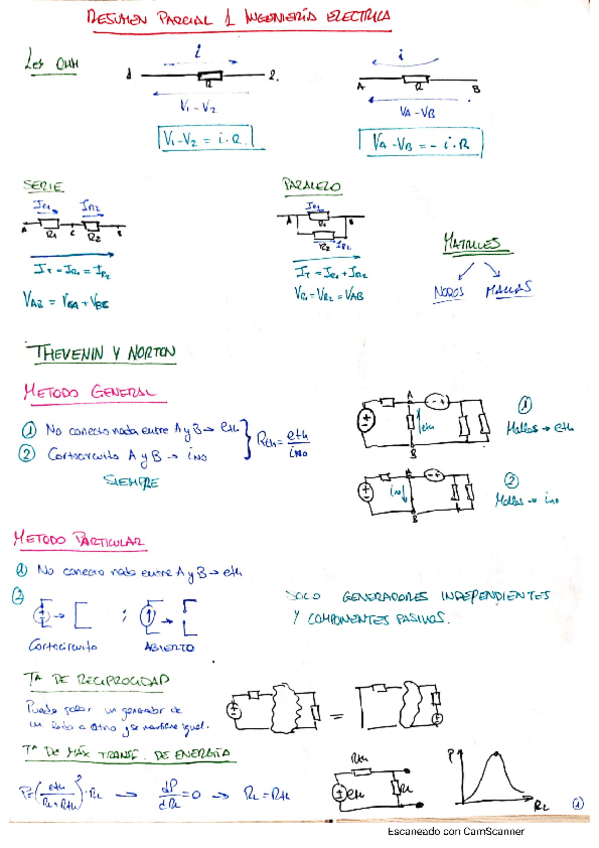 RESUMEN PARCIAL 1 INGENIERÍA ELECTRICA
LEY OHM
i
1
R
2.
V1-V2
V1-V2 = i.R.
i
A
R
B
VA-VB
VA-VB = - i.R
SERIE
IR1 IR2
A R1 C R2 B
IT = IR1 = IR2
PARALELO
IR1
A R1 B
R2 IR2
IT = IR1 + IR2
VR1 = VR2 = VAB
MATRICES
NODOS MALLAS
THEVENIN Y NORTON
METODO GENERAL
① No conecto nada entre A y B → eth
② Cortocircuito A y B → iNO
Rth = eth/iNO
SIEMPRE
A
eth
B
①
Mallas → eth
A
iNO
B
②
Mallas → iNO
METODO PARTICULAR
① No conecto nada entre A y B → eth
②
;
Cortocircuito ABIERTO
SOLO GENERADORES INDEPENDIENTES
Y COMPONENTES PASIVOS.
Tª DE RECIPROCIDAD
Puedo pasar un generador de
un lado a otro y se mantiene igual.
=
Tª DE MÁX TRANSF. DE ENERGÍA
P=(eth/(RL+Rth))²·RL → dP/dRL=0 → RL=Rth
Rth
eth
RL
P
RL
①
Escaneado con CamScanner